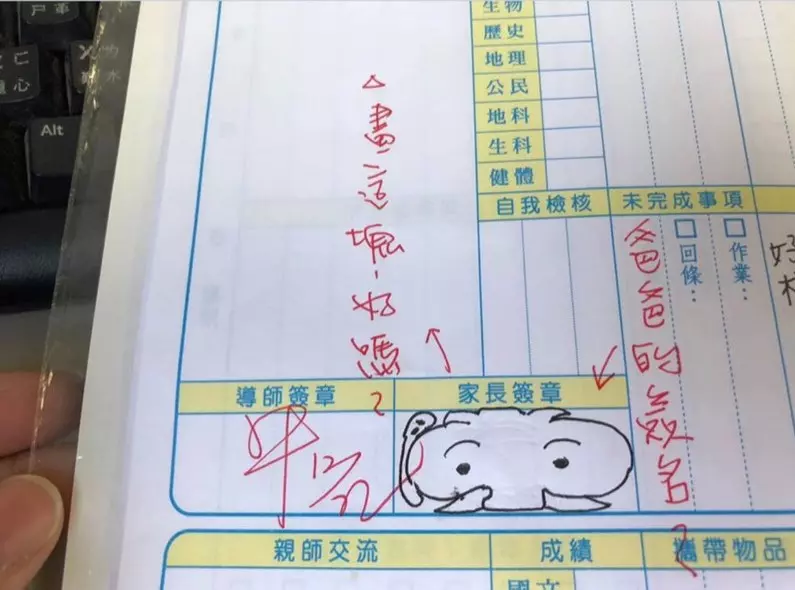 生物
歷史
地理
公民
地科
生科
健體
自我檢核
未完成事項
□作業：
□回條：
△畫這塊，好嗎？
爸爸的簽名？
導師簽章
家長簽章
12/22
親師交流
成績
攜帶物品
國文
Alt